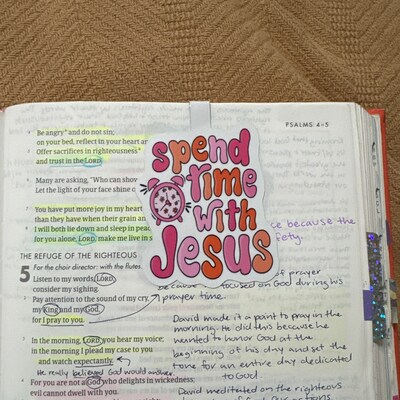 PSALMS 4–5
4 Be angry and do not sin;
on your bed, reflect in your heart an
5 Offer sacrifices in righteousness
and trust in the LORD
6 Many are asking, "Who can show
Let the light of your face shine o
7 You have put more joy in my heart
than they have when their grain an
8 I will both lie down and sleep in peac
for you alone, LORD, make me live in s
spend
time
with
Jesus
ce because the
fety.
THE REFUGE OF THE RIGHTEOUS
For the choir director: with the flutes.
5 Listen to my words, LORD;
consider my sighing.
Pay attention to the sound of my cry,
my King and my God,
for I pray to you.
In the morning, LORD, you hear my voice;
in the morning I plead my case to you
and watch expectantly.
He really believed God would answer
For you are not a God who delights in wickedness;
evil cannot dwell with you.
of prayer
because focused on God during his
prayer time.
David made it a point to pray in the
morning. He did this because he
wanted to honor God at the
beginning of his day and set the
tone for an entire day dedicated
to God.
David meditated on the righteous